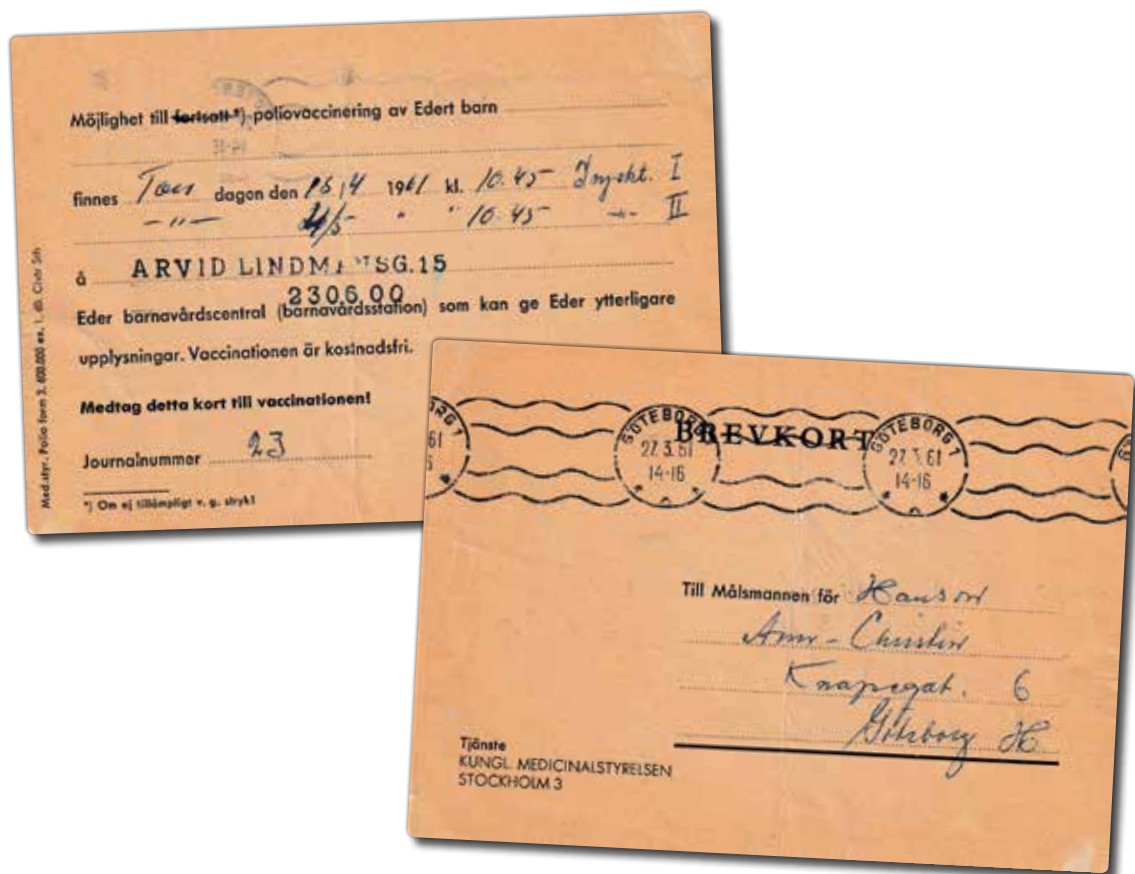 Möjlighet till fortsatt*) poliovaccinering av Edert barn
finnes Tors dagen den 1961 kl. 10.45 Injekt. I
—„— 4/5 " " 10.45 —„— II
å ARVID LINDMANSG.15
230600
Eder barnavårdscentral (barnavårdsstation) som kan ge Eder ytterligare
upplysningar. Vaccinationen är kostnadsfri.
Medtag detta kort till vaccinationen!
Journalnummer 23
*) Om ej tillämpligt v. g. stryk!
Med.styr. Polio form 3. 600.000 ex.
BREVKORT
GÖTEBORG 1
27.3.61
14-16
GÖTEBORG 1
27.3.61
14-16
Till Målsmannen för Hanson
Ann-Christin
Knapegat. 6
Göteborg H
Tjänste
KUNGL. MEDICINALSTYRELSEN
STOCKHOLM 3